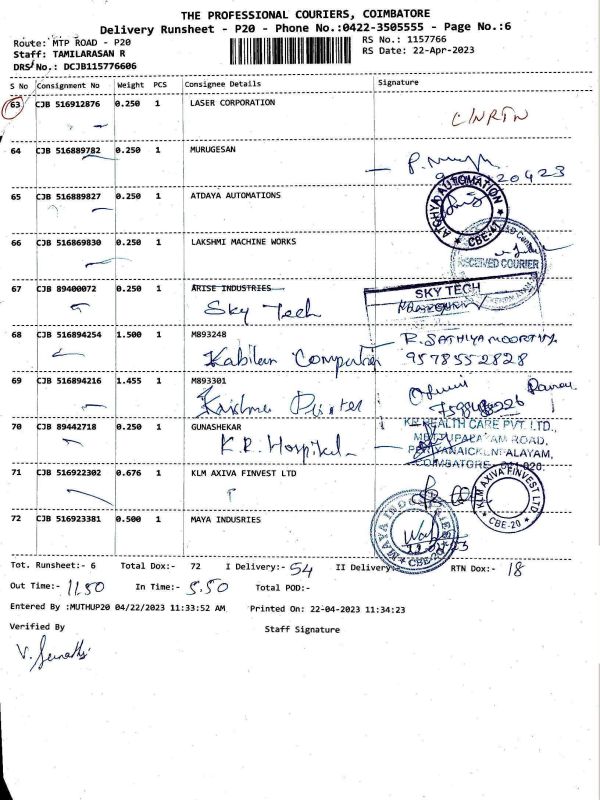 THE PROFESSIONAL COURIERS, COIMBATORE
Delivery Runsheet - P20 - Phone No.:0422-3505555 - Page No.:6
Route: MTP ROAD - P20 RS No.: 1157766
Staff: TAMILARASAN R RS Date: 22-Apr-2023
DRS No.: DCJB115776606
S No Consignment No Weight PCS Consignee Details Signature
63 CJB 516912876 0.250 1 LASER CORPORATION
64 CJB 516889782 0.250 1 MURUGESAN
65 CJB 516889827 0.250 1 ATDAYA AUTOMATIONS
66 CJB 516869830 0.250 1 LAKSHMI MACHINE WORKS
RECEIVED COURIER
67 CJB 89400072 0.250 1 ARISE INDUSTRIES
SKY TECH
Sky Tech
68 CJB 516894254 1.500 1 M893248
R. SATHIYAMOORTHY
9578552828
69 CJB 516894216 1.455 1 M893301
70 CJB 89442718 0.250 1 GUNASHEKAR
K.R. Hospital
KR HEALTH CARE PVT. LTD.,
71 CJB 516922302 0.676 1 KLM AXIVA FINVEST LTD
KLM AXIVA FINVEST LTD.
CBE-20
72 CJB 516923381 0.500 1 MAYA INDUSRIES
MAYA INDUSTRIES
CBE-20
Tot. Runsheet:- 6 Total Dox:- 72 I Delivery:- 54 II Delivery:- RTN Dox:- 18
Out Time:- 11.50 In Time:- 5.50 Total POD:-
Entered By :MUTHUP20 04/22/2023 11:33:52 AM Printed On: 22-04-2023 11:34:23
Verified By Staff Signature